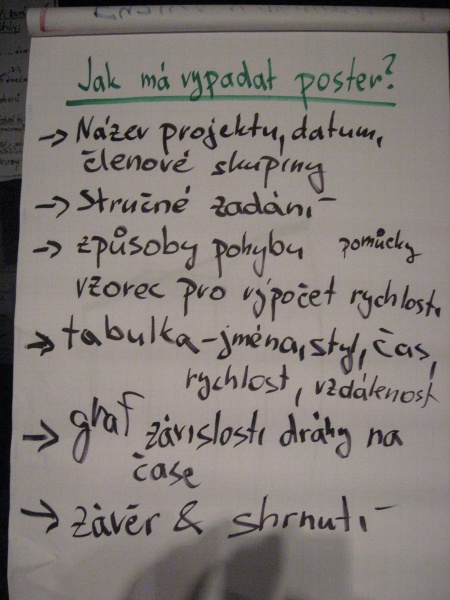 Jak má vypadat poster?
→ Název projektu, datum,
členové skupiny
→ Stručné zadání
→ způsoby pohybu pomůcky
vzorec pro výpočet rychlosti
→ tabulka - jména, styl, čas,
rychlost, vzdálenost
→ graf závislosti dráhy na
čase
→ závěr & shrnutí